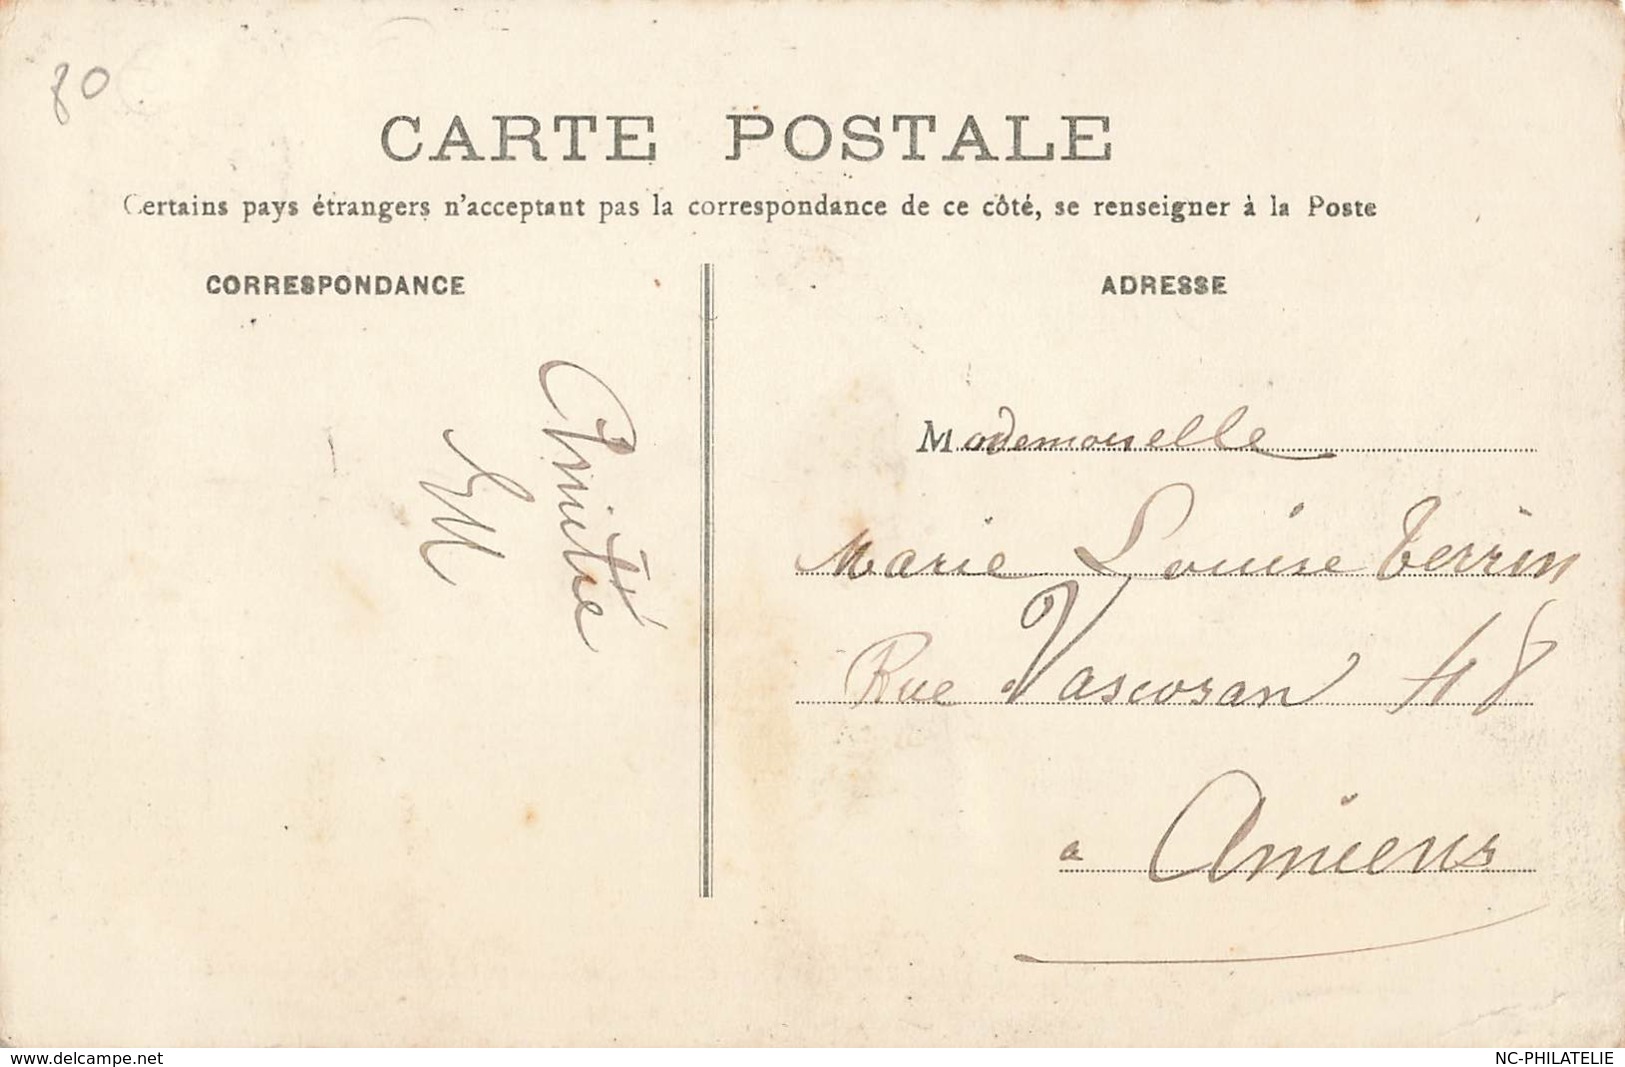 80
CARTE POSTALE
Certains pays étrangers n'acceptant pas la correspondance de ce côté, se renseigner à la Poste
CORRESPONDANCE
Amitié
EM
ADRESSE
Mademoiselle
Marie Louise Terrin
Rue Vascosan 48
a Amiens
www.delcampe.net
NC-PHILATELIE